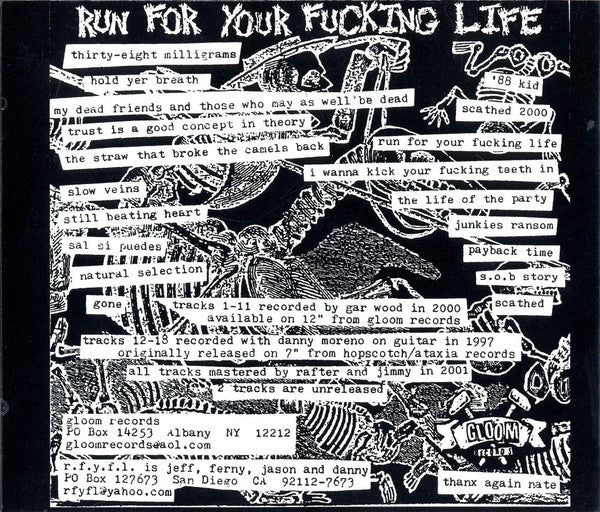 RUN FOR YOUR FUCKING LIFE
thirty-eight milligrams
hold yer breath
my dead friends and those who may as well be dead
trust is a good concept in theory
the straw that broke the camels back
slow veins
still beating heart
sal si puedes
natural selection
gone
'88 kid
scathed 2000
run for your fucking life
i wanna kick your fucking teeth in
the life of the party
junkies ransom
payback time
s.o.b story
scathed
tracks 1-11 recorded by gar wood in 2000
available on 12" from gloom records
tracks 12-18 recorded with danny moreno on guitar in 1997
originally released on 7" from hopscotch/ataxia records
all tracks mastered by rafter and jimmy in 2001
2 tracks are unreleased
gloom records
PO Box 14253 Albany NY 12212
gloomrecords@aol.com
r.f.y.f.l. is jeff, ferny, jason and danny
PO Box 127673 San Diego CA 92112-7673
rfyfl@yahoo.com
GLOOM
RECORDS
thanx again nate